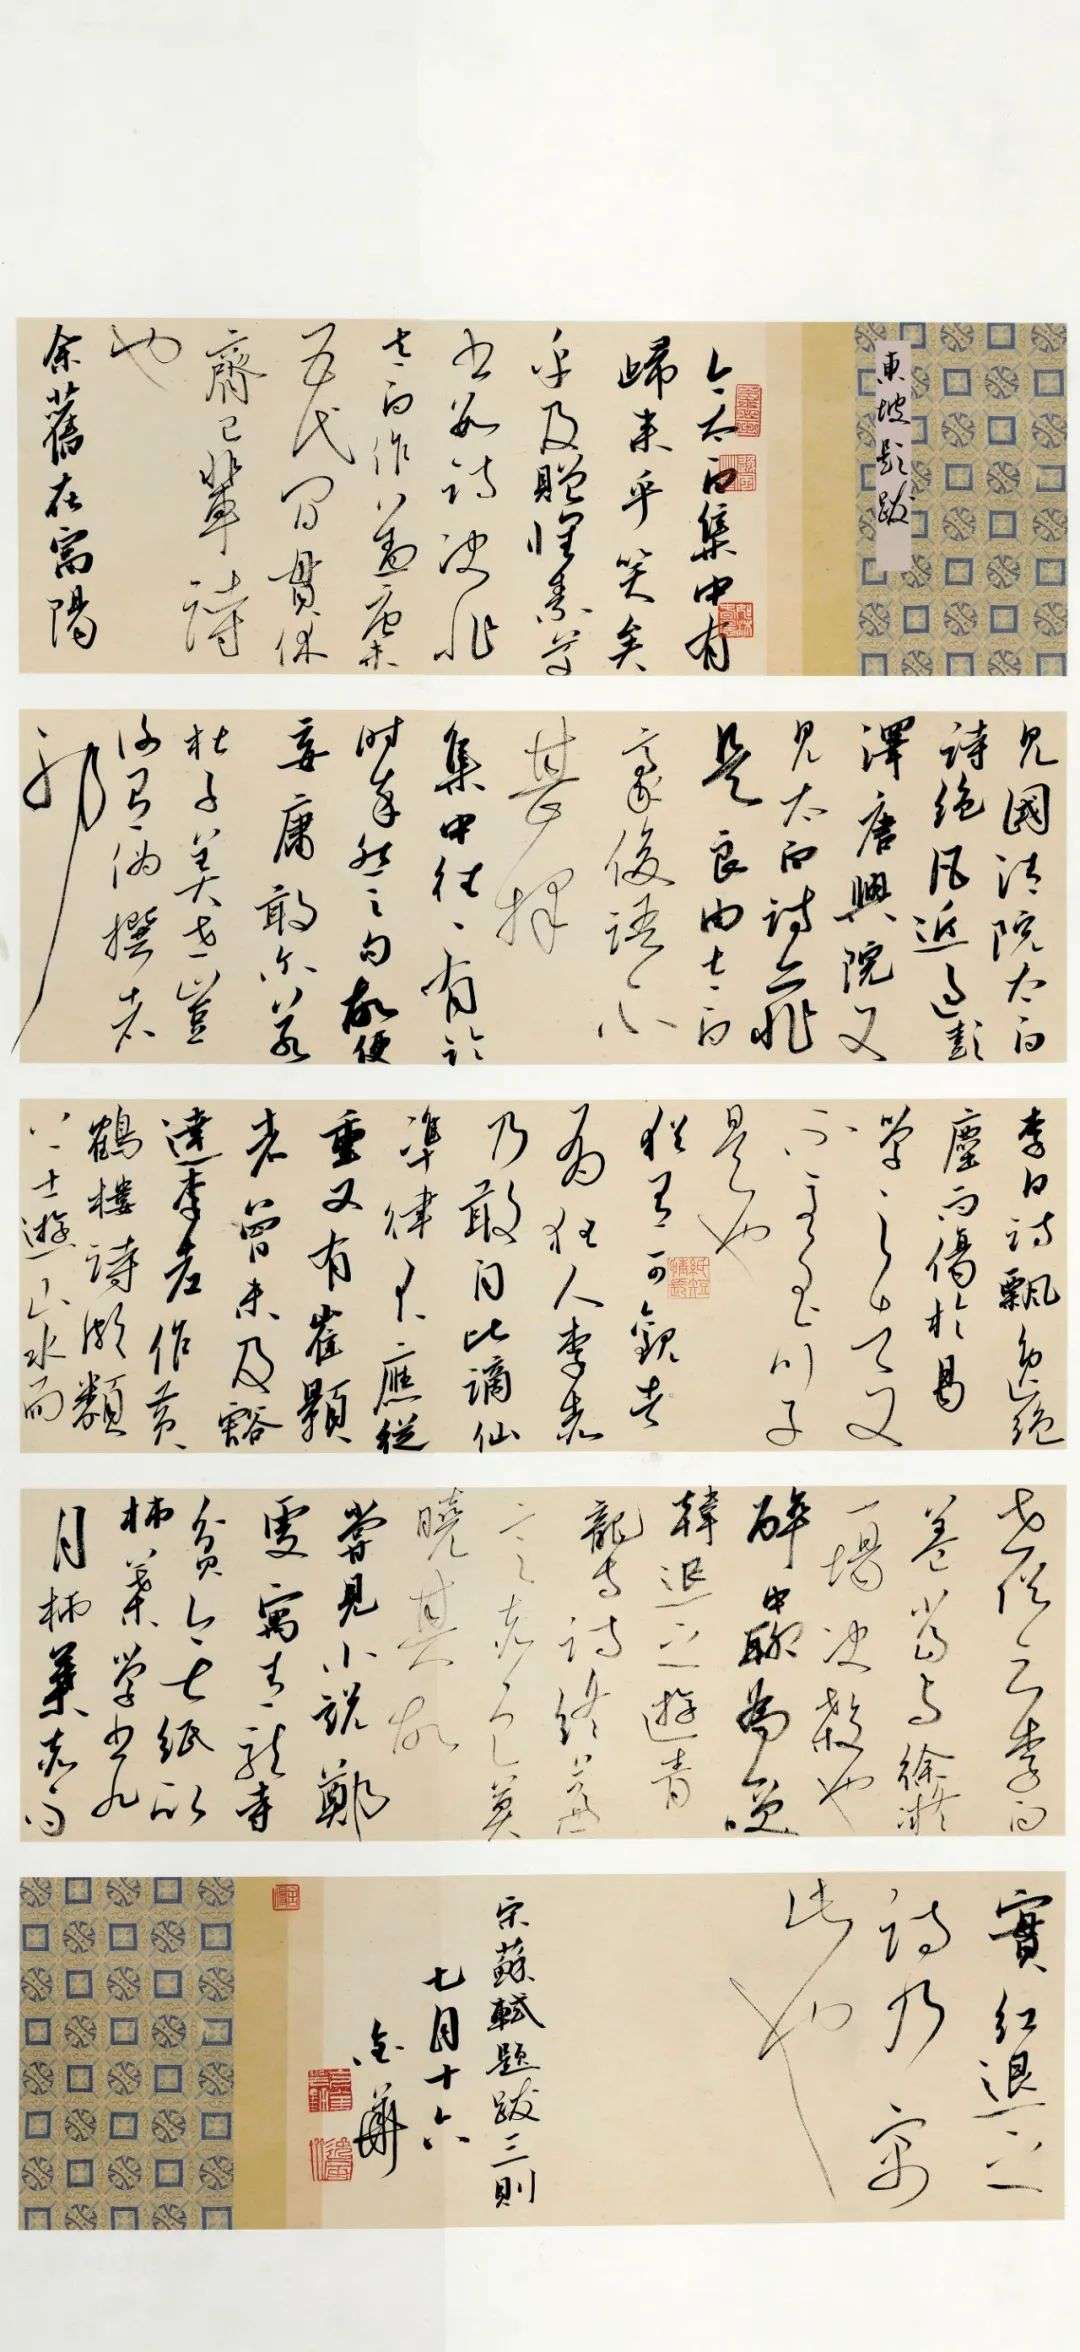 東坡題跋
今太白集中有
歸来乎笑矣
乎及贈懷素草
書數詩决非
太白作蓋唐末
五代間貫休
齊己輩詩
也
余舊在富陽
見國清院太白
詩絶凡近過彭
澤唐興院又
見太白詩亦非
是良由太白
豪俊語不
甚擇
集中往〻有臨
時率然之句故使
妄庸敢爾若
杜子美世豈
復有偽撰者
耶
李白詩飄逸絶
塵而傷於易
學之者又
不至玉川子
是也
猶有可觀者
有狂人李赤
乃敢自比謫仙
準律不應從
重又有崔顥
者曾未及豁
達李老作黄
鶴樓詩頗類
上士遊山水而
世俗云李白
蓋當與徐凝
一場决殺也
醉中聊為一笑
韓退之遊青
龍寺詩終篇
言赤色莫
曉其故
嘗見小説鄭
虔寓青龍寺
貧無紙取
柿葉學書九
月柿葉赤而
實紅退之
詩乃寓
此也
宋蘇軾題跋三則
七月十六